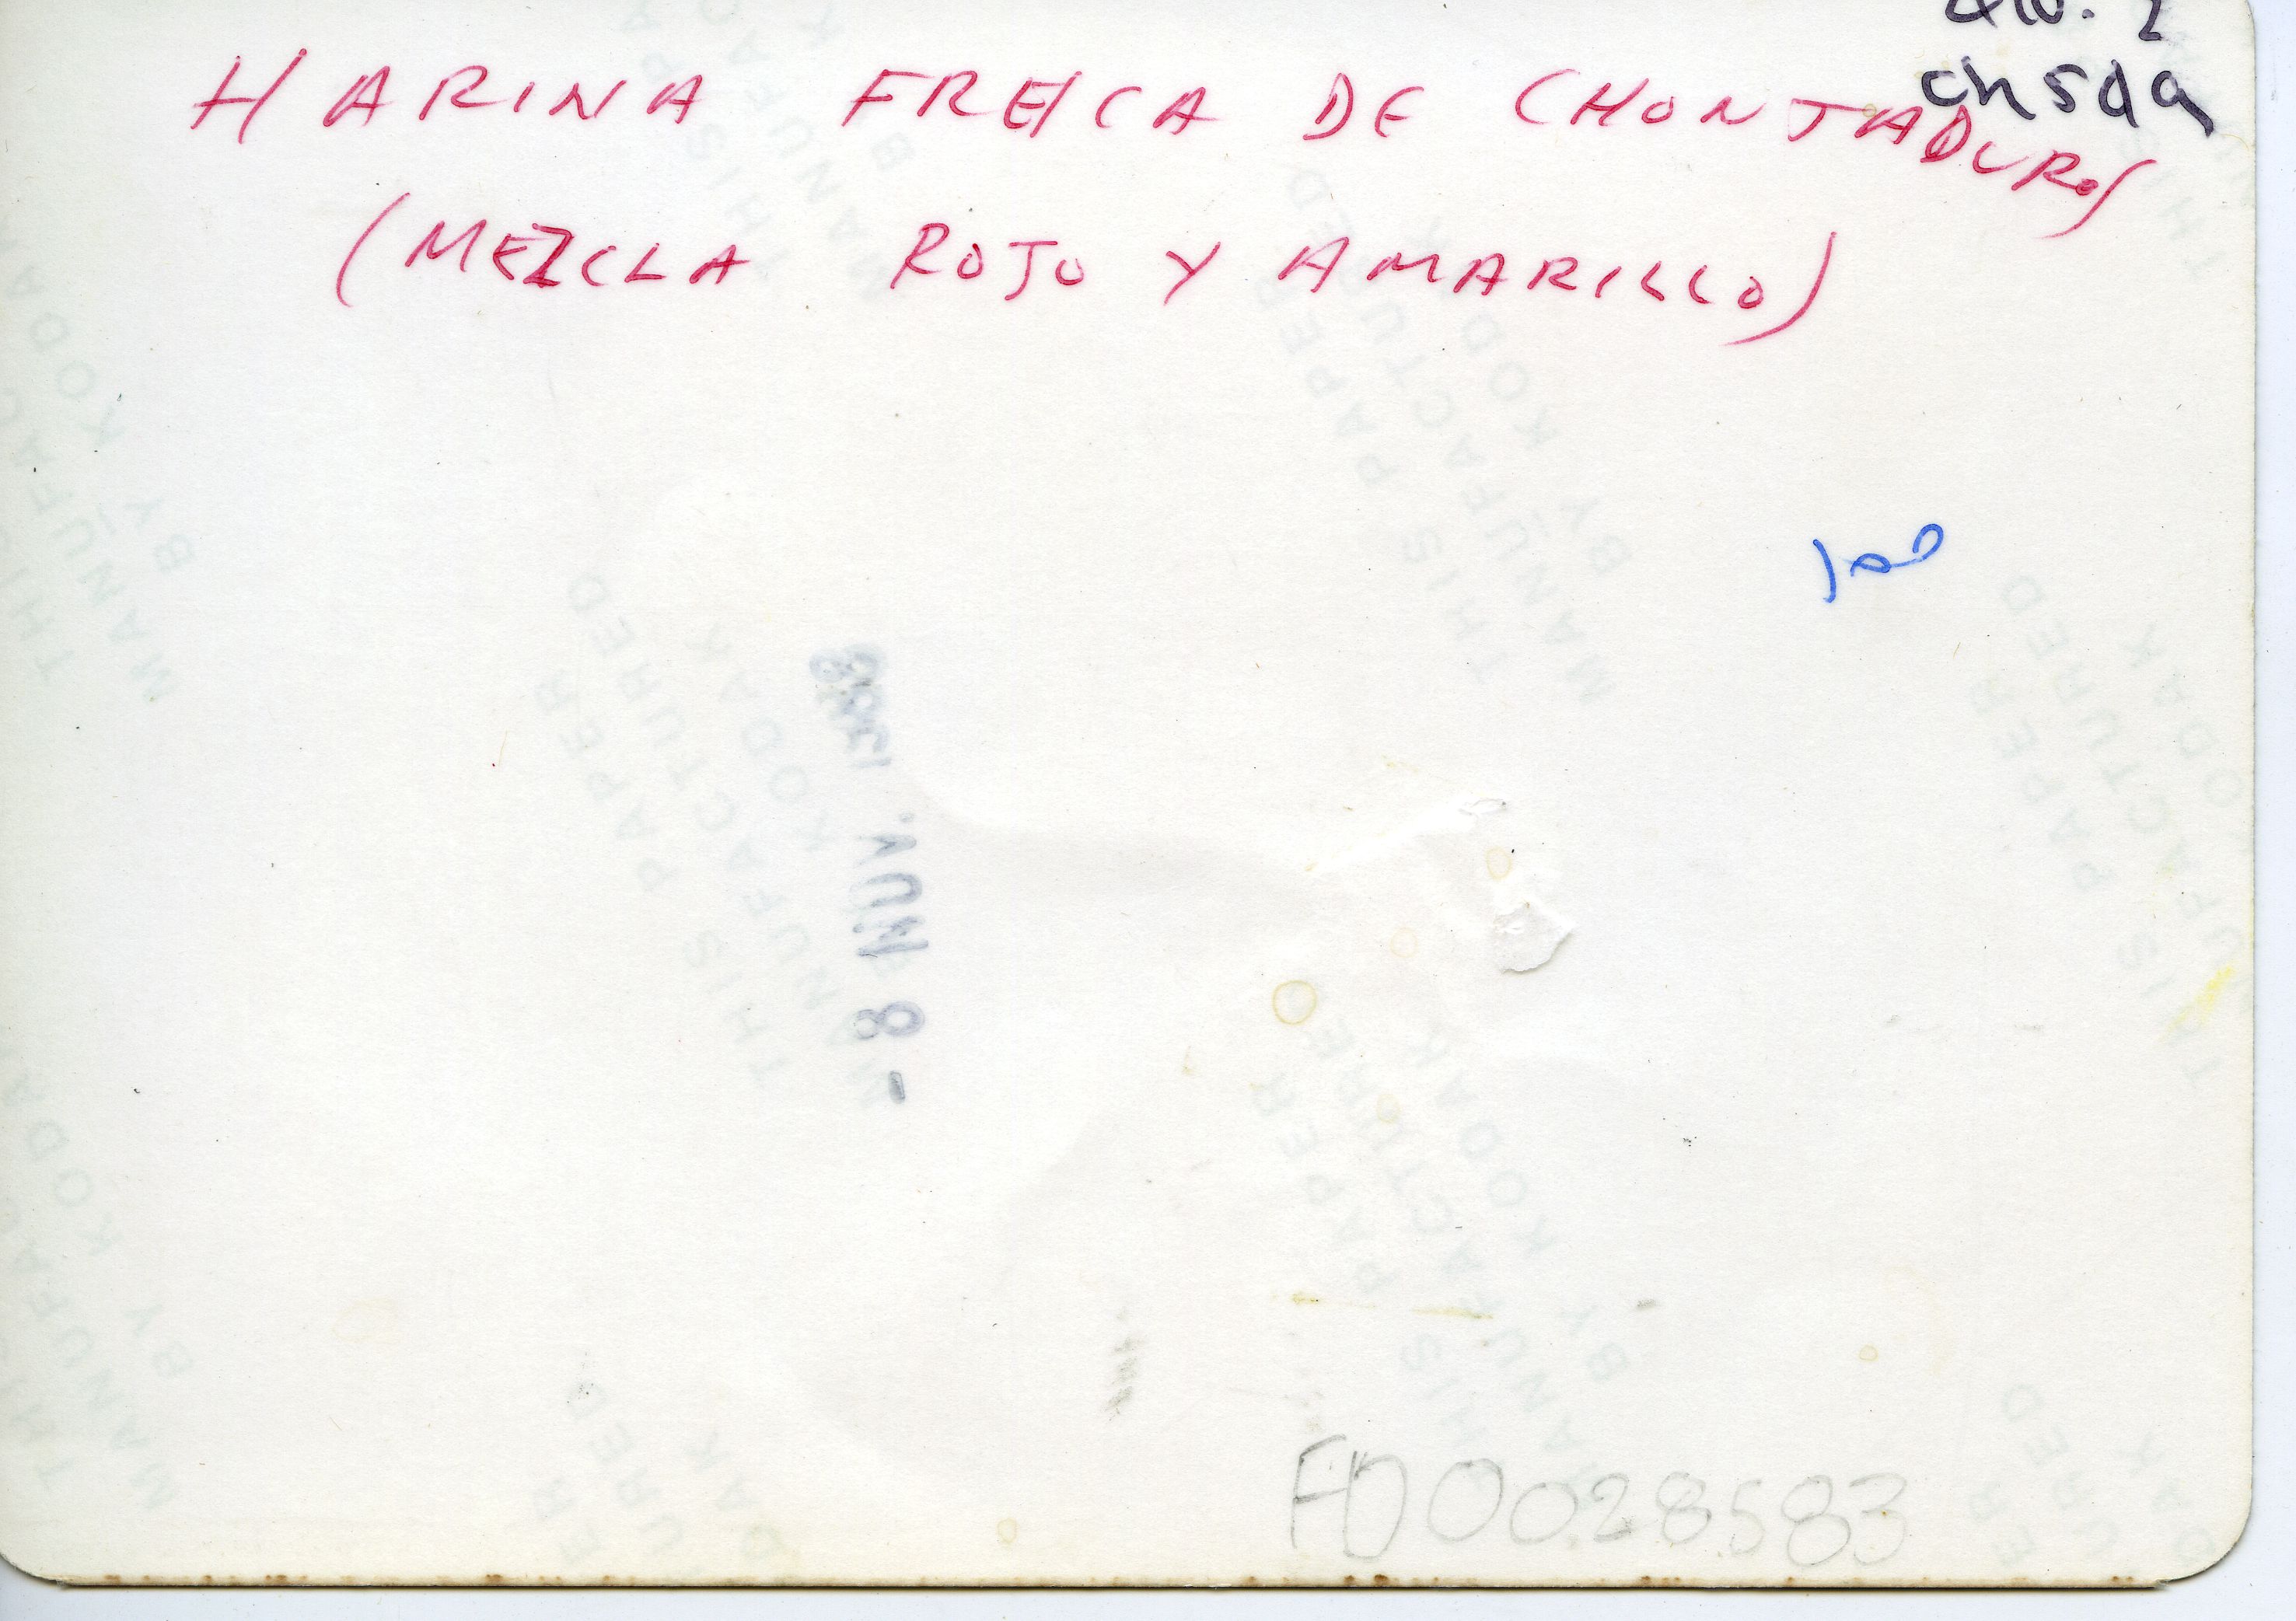 chsda
HARINA FRESCA DE CHONTADUROS
(MEZCLA ROJO Y AMARILLO)
100
- 8 NOV. 1988
FD0028583
THIS PAPER
MANUFACTURED
BY KODAK